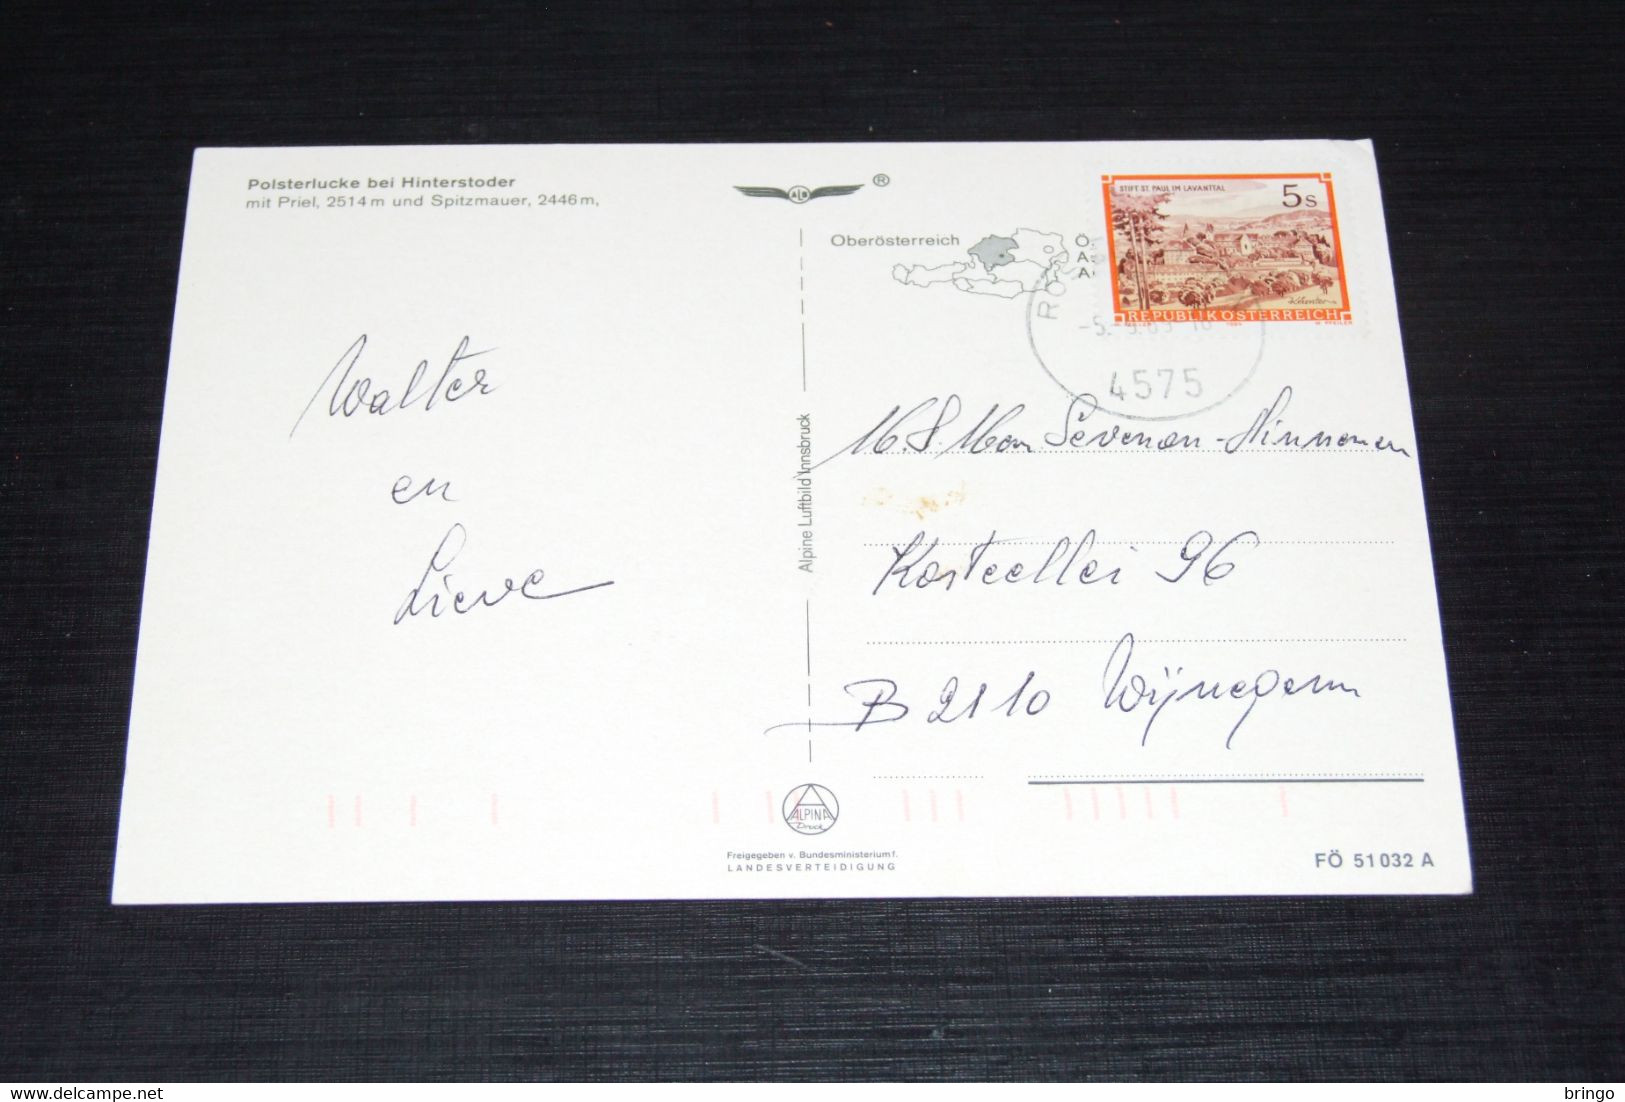 Polsterlucke bei Hinterstoder
mit Priel, 2514 m und Spitzmauer, 2446 m,
Walter
en
Lieve
ALB
®
Oberösterreich
STIFT ST. PAUL IM LAVANTTAL
5s
REPUBLIK ÖSTERREICH
1984
W. PFEILER
4575
Alpine Luftbild Innsbruck
Sevenan - Hinnenen
Kasteellei 96
B 2110 Wijnegem
ALPINA
Druck
Freigegeben v. Bundesministerium f.
LANDESVERTEIDIGUNG
FÖ 51 032 A
bringo